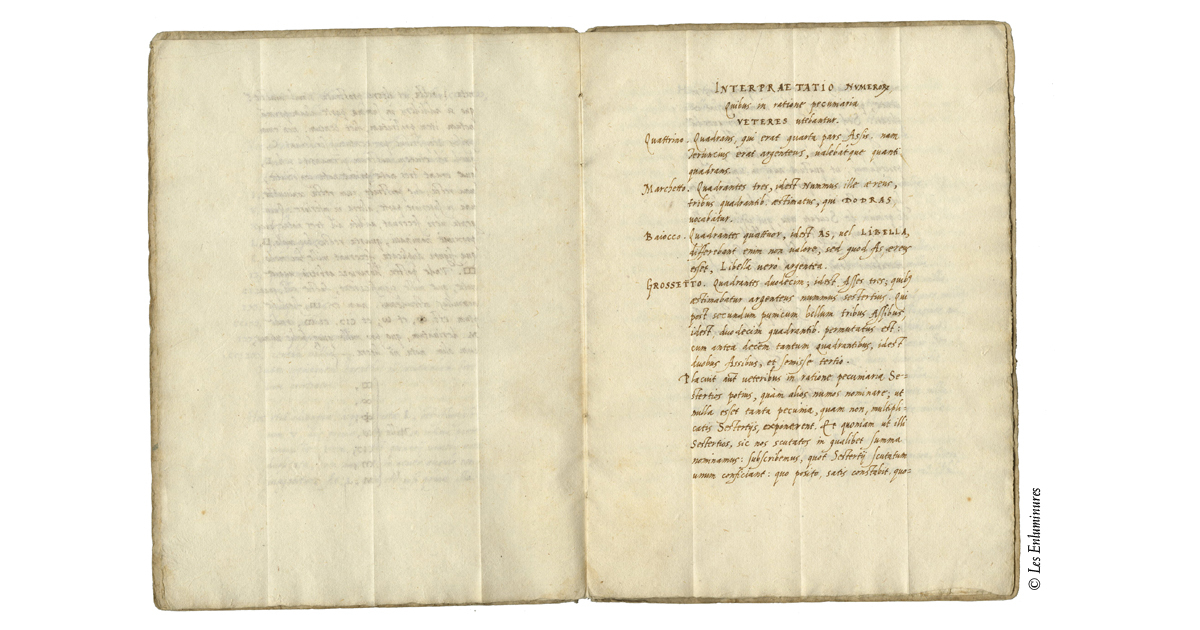 INTERPRAETATIO NVMEROR
Quibus in ratione pecuniaria
VETERES utebantur.
Quattrino. Quadrans, qui erat quarta pars Assis. nam
teruncius erat argenteus, ualebatque quanti
quadrans.
Marchetto. Quadrantes tres, idest Nummus ille æreus,
tribus quadrantib. æstimatus, qui DODRAS
uocabatur.
Baiocco. Quadrantes quattuor, idest AS, uel LIBELLA,
differebant enim non ualore, sed quod As æreus
esset, Libella uero argentea.
GROSSETTO. Quadrantes duodecim; idest Asses tres; quib
æstimabatur argenteus nummus sestertius. Qui
post secundum punicum bellum tribus Assibus
idest duodecim quadrantib. permutatus est:
cum antea decem tantum quadrantibus, idest
duobus Assibus, et semisse tertio.
Placuit aut ueteribus in ratione pecuniaria Se-
stertios potius, quam alios numos nominare; ut
nulla esset tanta pecunia, quam non, multipli-
catis Sestertijs, exponerent. Et quoniam ut illi
Sestertios, sic nos scutatos in qualibet summa
nominamus: subscribemus, quot Sestertij scutatum
unum conficiant: quo posito, satis constabit, quo-
© Les Enluminures